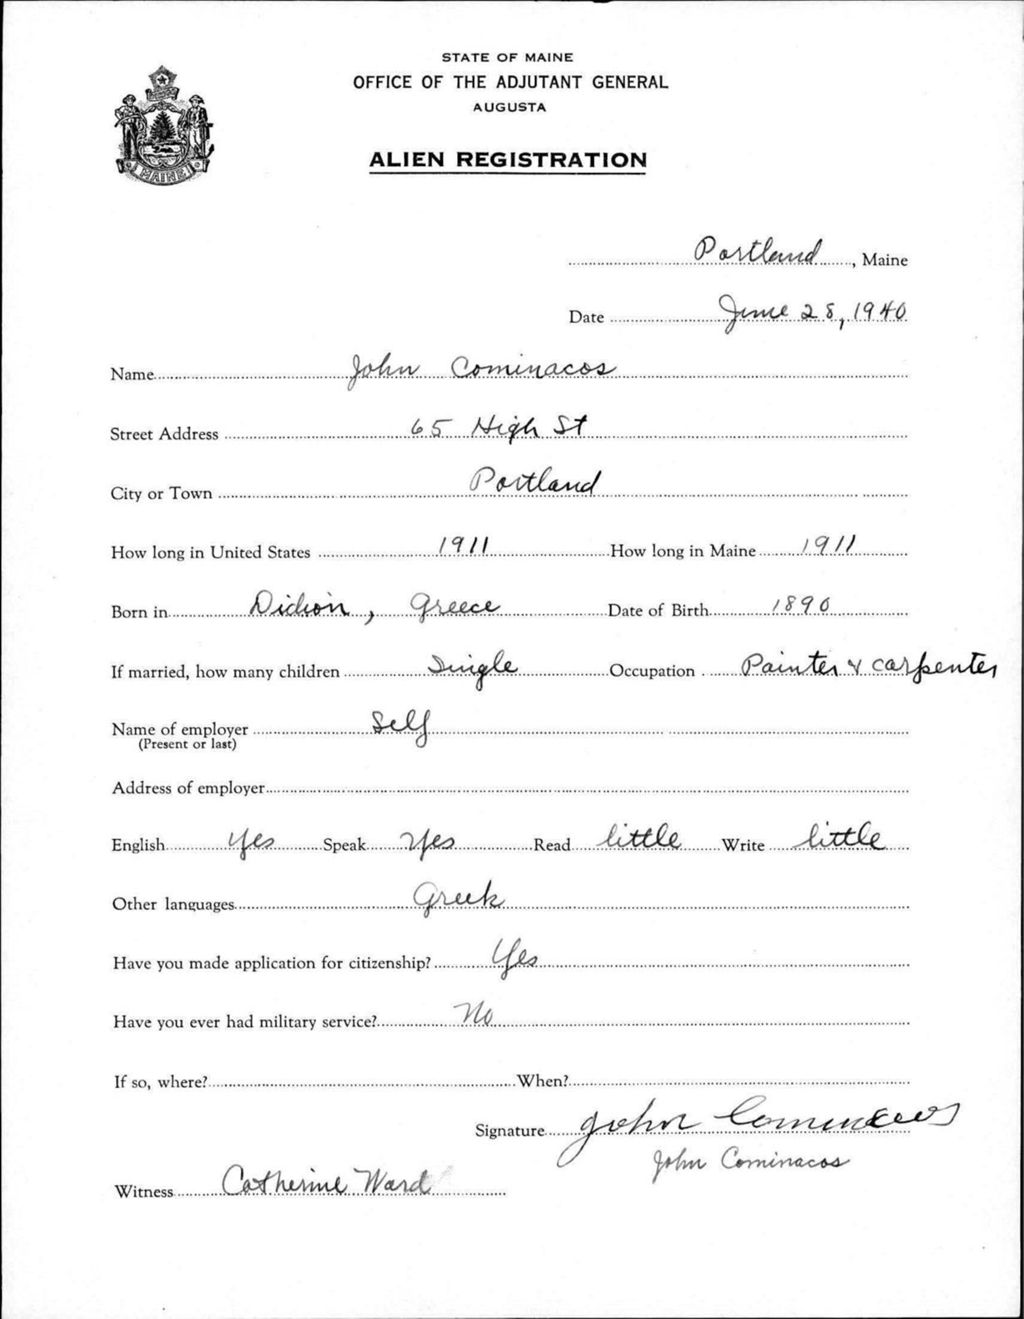 STATE OF MAINE
OFFICE OF THE ADJUTANT GENERAL
AUGUSTA
ALIEN REGISTRATION
MAINE
Portland, Maine
Date June 28, 1940
Name John Cominacos
Street Address 65 High St
City or Town Portland
How long in United States 1911 How long in Maine 1911
Born in , Greece Date of Birth 1890
If married, how many children Single Occupation Painter & carpenter
Name of employer Self
(Present or last)
Address of employer
English Yes Speak Yes Read little Write little
Other languages Greek
Have you made application for citizenship? Yes
Have you ever had military service? No
If so, where? When?
Signature John Cominacos
John Cominacos
Witness Catherine Ward